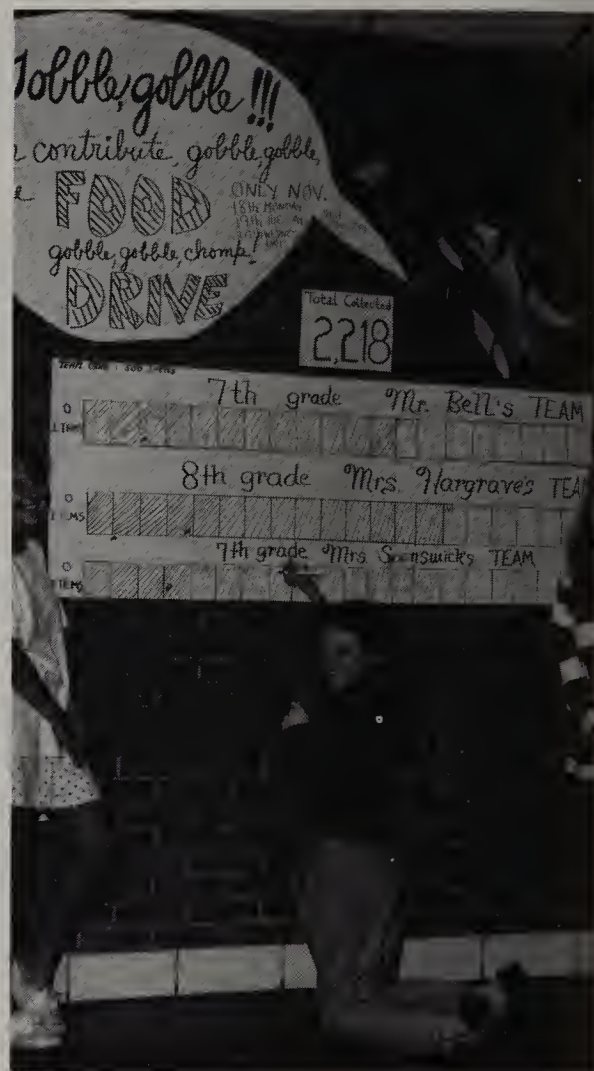 obble, gobble !!!
contribute gobble, gobble,
FOOD
ONLY NOV.
18th MONDAY
gobble, gobble, chomp!
DRIVE
Total Collected
2,218
7th grade Mr. Bell's TEAM
0
8th grade Mrs. Hargrave's TEA
0
7th grade Mrs. TEAM
0